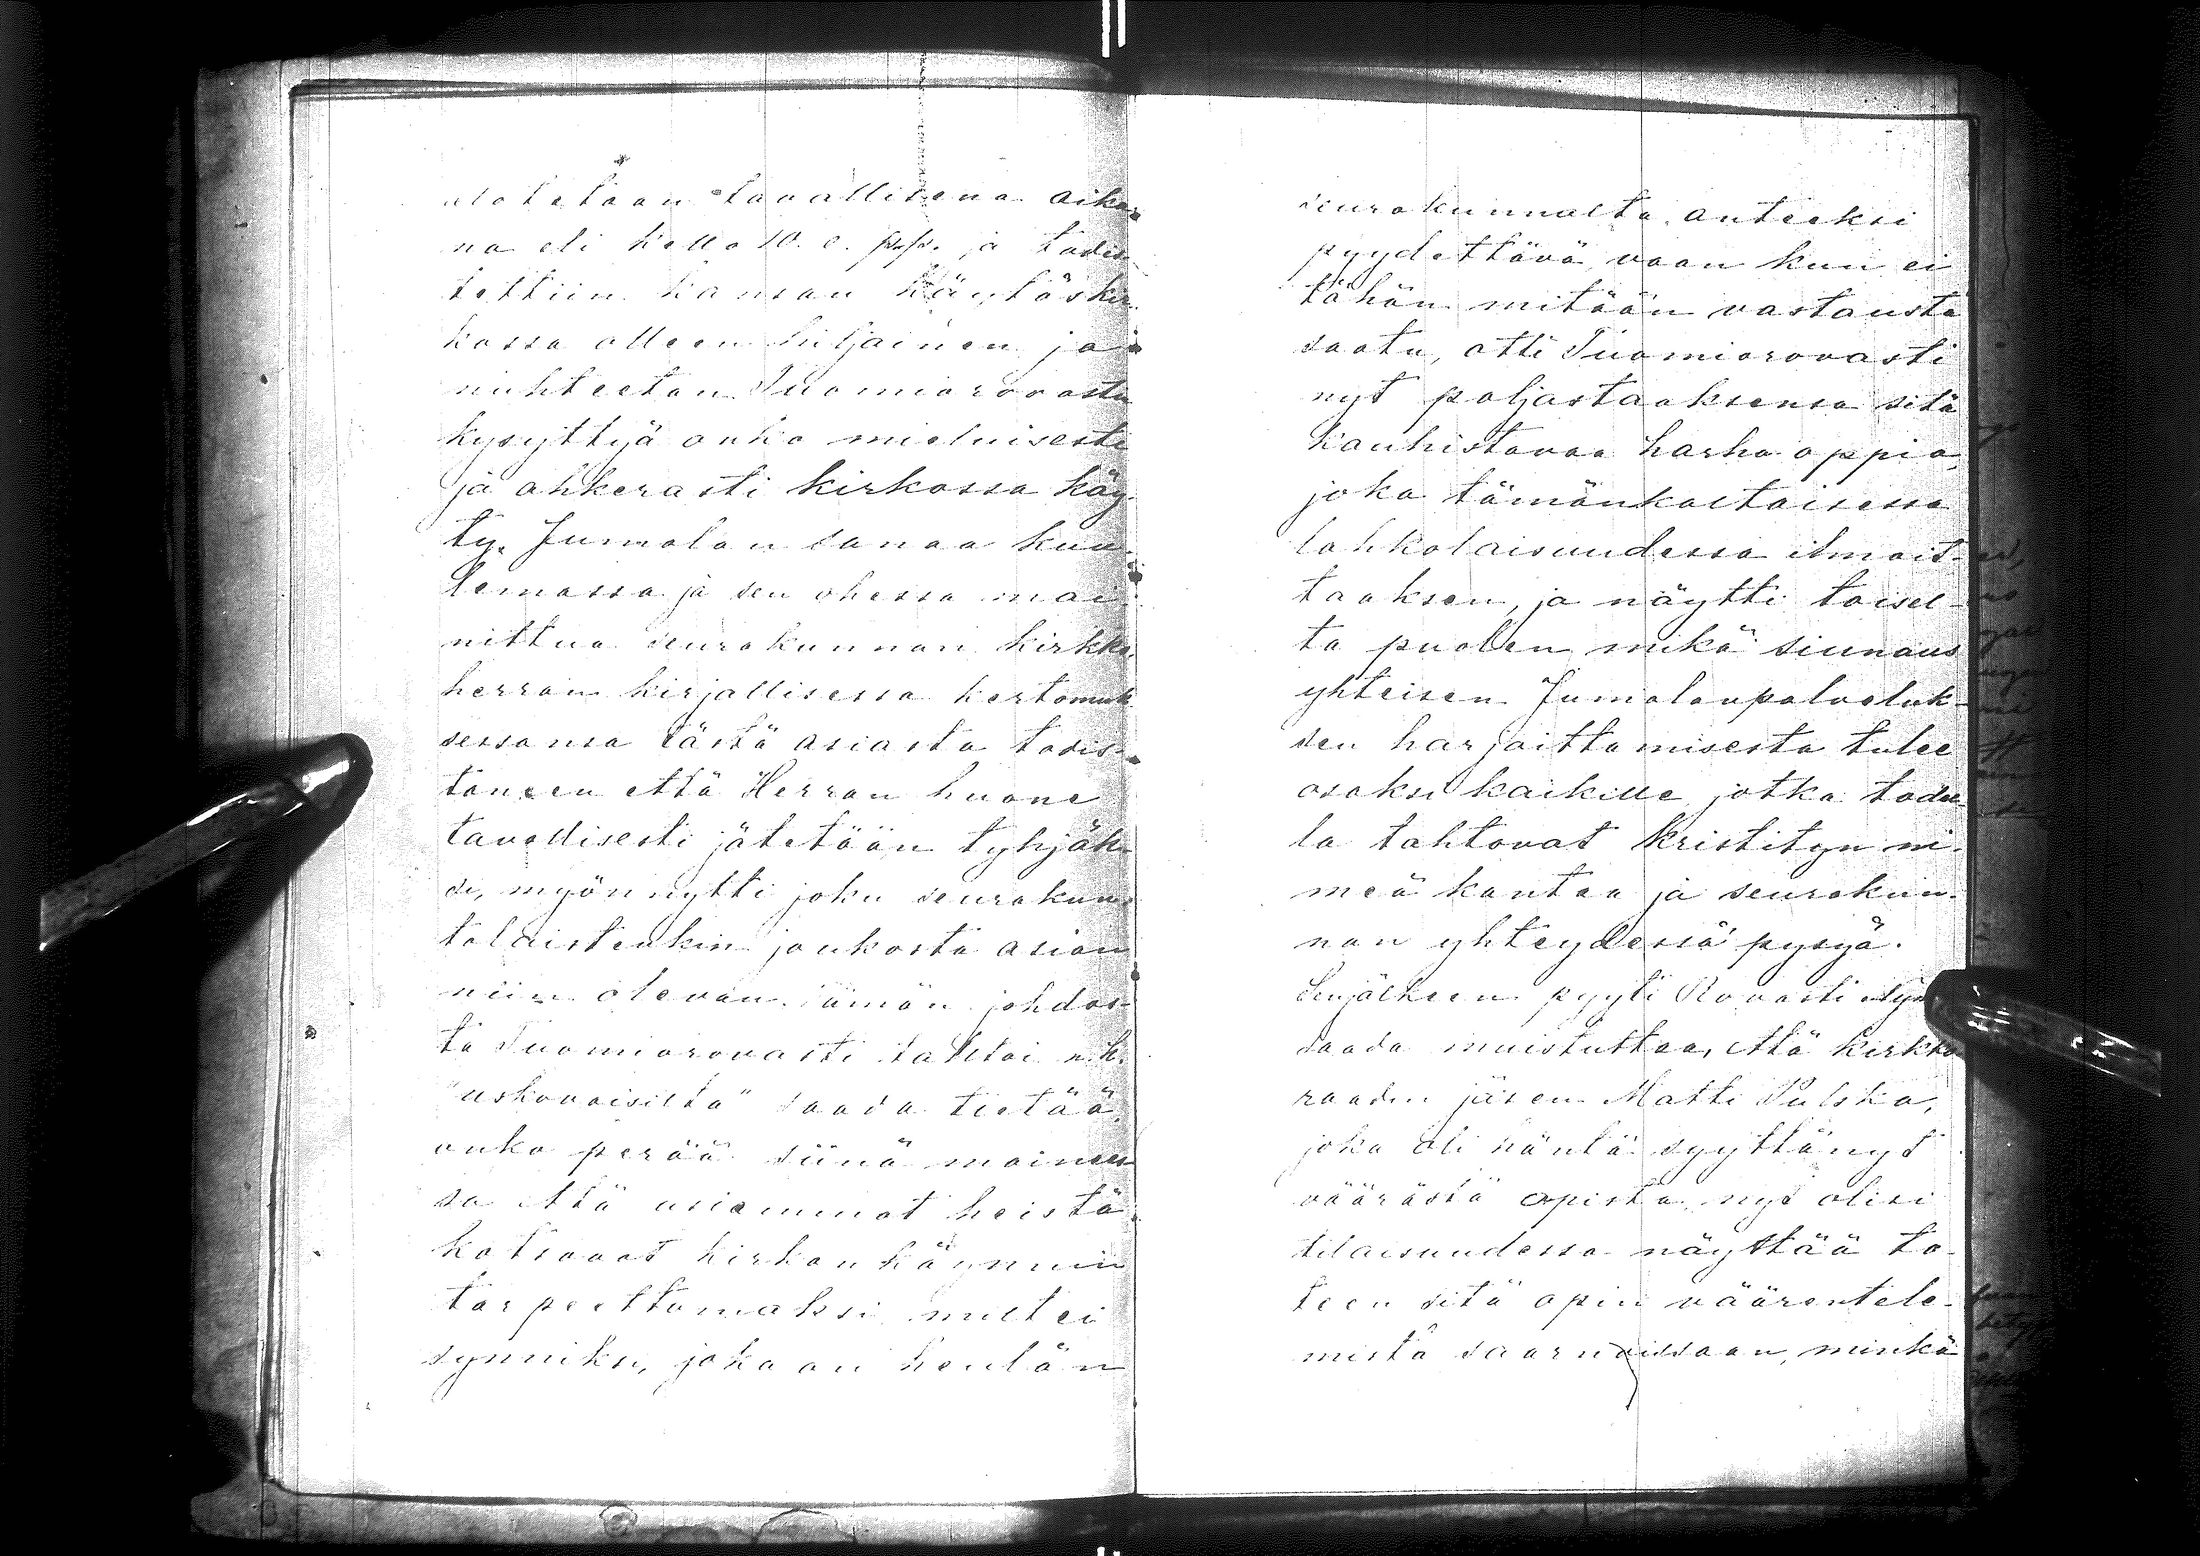 alotetaan tavallisena aika-
na eli kello 10. e. pp. ja todis
tettiin kansan käytös kir
kossa olleen hiljainen ja
nuhteeton. Tuomiorovastin
kysyttyä onko mieluisesti
ja ahkerasti kirkossa käy-
ty. Jumalan sanaa kuu-
lemassa ja sen ohessa mai-
nittua seurakunnan kirkko-
herran kirjallisessa kertomuk
sessansa tästä asiasta todis-
taneen että Herran huone
tavallisesti jätetään tyhjäk-
si, myönnytti joku seurakun-
talaistenkin joukosta asian
niin olevan. Tämän johdos-
ta Tuomiorovasti tahtoi n.k.
"uskovaisilta" saada tietää
onko perää siinä mainees
sa että useimmat heistä
katsovat kirkonkäynnin
tarpeettomaksi, multei
synniksi, joka on heidän
seurakunnalta anteeksi
pyydettävä, vaan kun ei
tähän mitään vastausta
saatu, otti Tuomiorovasti
nyt paljastaaksensa sitä
kauhistavaa harhaoppia,
joka tämänkaltaisessa
lahkolaisuudessa ilmais-
taaksen, ja näytti toisel-
ta puolen mikä siunaus
yhteisen Jumalanpalveluk-
sen harjoittamisesta tulee
osaksi kaikille, jotka todel
la tahtovat kristityn ni-
meä kantaa ja seurakun-
nan yhteydessä pysyä.
Senjälkeen pyyti Rovasti
saada muistuttaa, että kirkko
raadin jäsen Matti Pulska,
joka oli häntä syyttänyt
väärästä opista, nyt olisi
tilaisuudessa näyttää to-
teen sitä opin väärentele-
mistä saarnaissaan, minkä